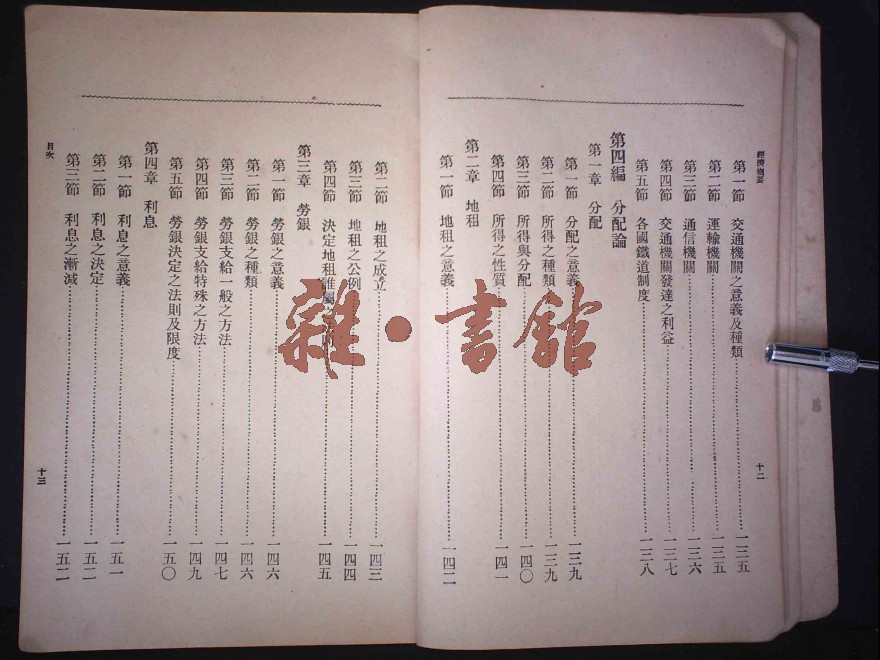 經濟概要
第一節 交通機關之意義及種類……一三五
第二節 運輸機關……一三五
第三節 通信機關……一三六
第四節 交通機關發達之利益……一三七
第五節 各國鐵道制度……一三八
第四編 分配論
第一章 分配
第一節 分配之意義……一三九
第二節 所得之種類……一三九
第三節 所得與分配……一四〇
第四節 所得之性質……一四一
第二章 地租
第一節 地租之意義……一四二
十二
第二節 地租之成立……一四三
第三節 地租之公例……一四四
第四節 決定地租……一四五
第三章 勞銀
第一節 勞銀之意義……一四六
第二節 勞銀之種類……一四六
第三節 勞銀支給一般之方法……一四七
第四節 勞銀支給特殊之方法……一四九
第五節 勞銀決定之法則及限度……一五〇
第四章 利息
第一節 利息之意義……一五一
第二節 利息之決定……一五二
第三節 利息之漸減……一五二
目次
十三
雜·書館